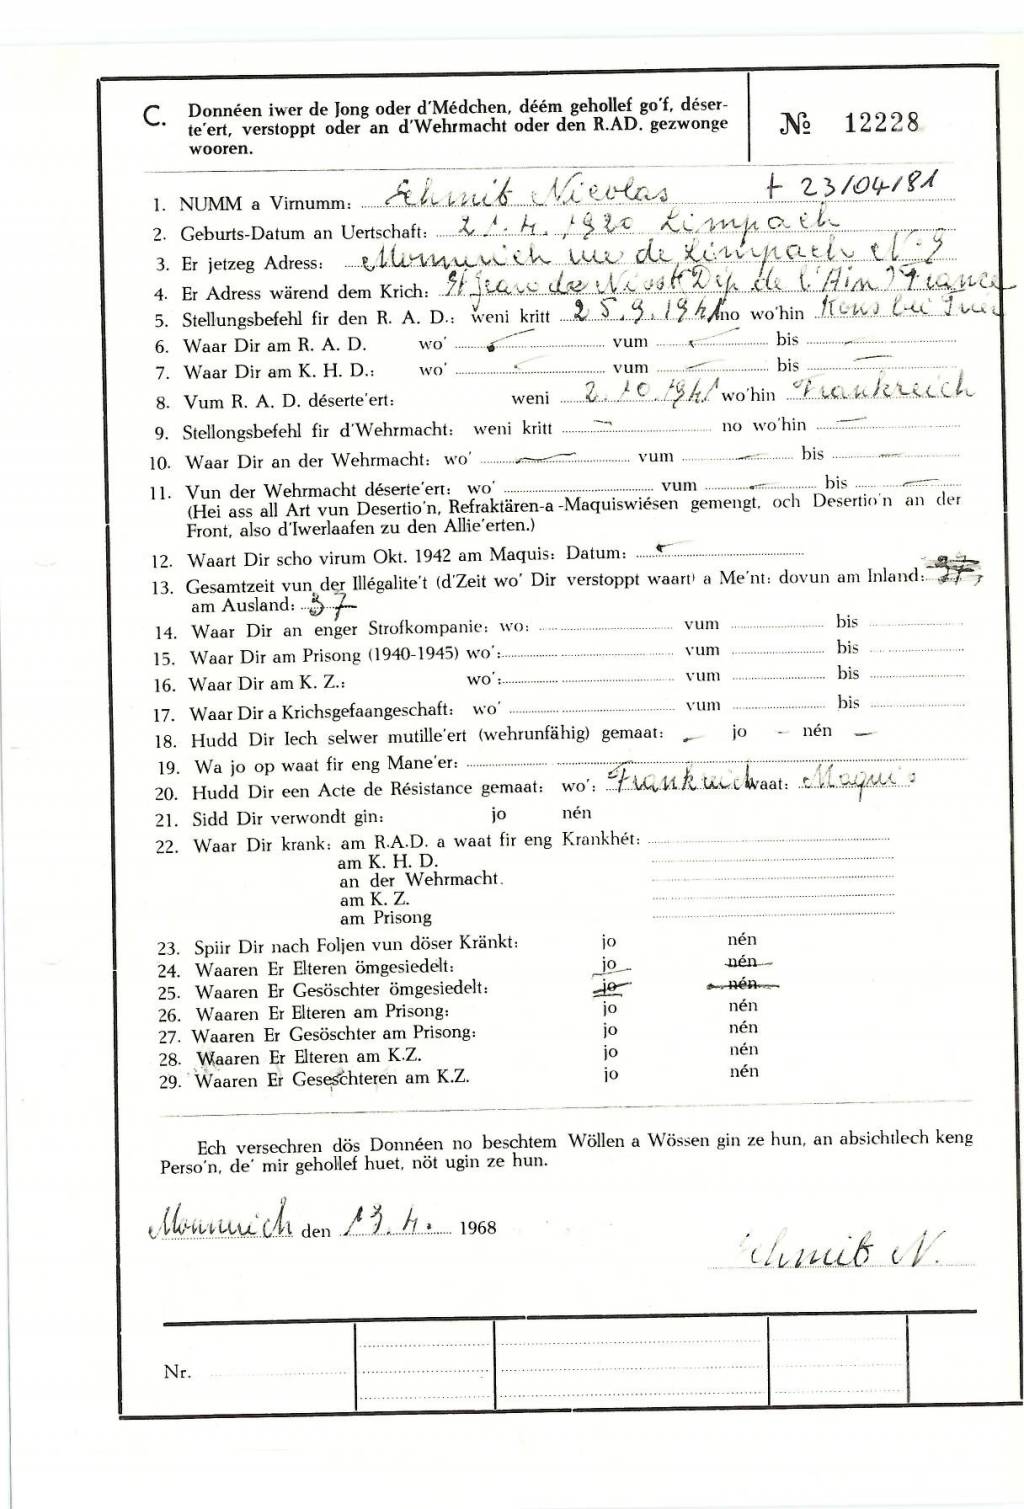 C. Donnéen iwer de Jong oder d'Médchen, déém gehollef go'f, déser-
te'ert, verstoppt oder an d'Wehrmacht oder den R.AD. gezwonge
wooren.
№ 12228
1. NUMM a Virnumm: Schmit Nicolas † 23/04/81
2. Geburts-Datum an Uertschaft: 21.4.1920 Limpach
3. Er jetzeg Adress: Monnerich rue de Limpach N. 9
4. Er Adress wärend dem Krich: St Jean de Dép de l'Ain France
5. Stellungsbefehl fir den R. A. D.: weni kritt 25.9.1941 no wo'hin Kons bei Trier
6. Waar Dir am R. A. D. wo' vum bis
7. Waar Dir am K. H. D.: wo' vum bis
8. Vum R. A. D. déserte'ert: weni 2.10.1941 wo'hin Frankreich
9. Stellongsbefehl fir d'Wehrmacht: weni kritt no wo'hin
10. Waar Dir an der Wehrmacht: wo' vum bis
11. Vun der Wehrmacht déserte'ert: wo' vum bis
(Hei ass all Art vun Desertio'n, Refraktären-a-Maquiswiésen gemengt, och Desertio'n an der
Front, also d'Iwerlaafen zu den Allie'erten.)
12. Waart Dir scho virum Okt. 1942 am Maquis: Datum:
13. Gesamtzeit vun der Illégalite't (d'Zeit wo' Dir verstoppt waart) a Me'nt: dovun am Inland:
am Ausland: 37
14. Waar Dir an enger Strofkompanie: wo: vum bis
15. Waar Dir am Prisong (1940-1945) wo': vum bis
16. Waar Dir am K. Z.: wo': vum bis
17. Waar Dir a Krichsgefaangeschaft: wo' vum bis
18. Hudd Dir Iech selwer mutille'ert (wehrunfähig) gemaat: jo nén
19. Wa jo op waat fir eng Mane'er:
20. Hudd Dir een Acte de Résistance gemaat: wo': Frankreich waat: Maquis
21. Sidd Dir verwondt gin: jo nén
22. Waar Dir krank: am R.A.D. a waat fir eng Krankhét:
am K. H. D.
an der Wehrmacht.
am K. Z.
am Prisong
23. Spiir Dir nach Foljen vun döser Kränkt: jo nén
24. Waaren Er Elteren ömgesiedelt: jo nén
25. Waaren Er Gesöschter ömgesiedelt: jo nén
26. Waaren Er Elteren am Prisong: jo nén
27. Waaren Er Gesöschter am Prisong: jo nén
28. Waaren Er Elteren am K.Z. jo nén
29. Waaren Er Geseschteren am K.Z. jo nén
Ech versechren dös Donnéen no beschtem Wöllen a Wössen gin ze hun, an absichtlech keng
Perso'n, de' mir gehollef huet, nöt ugin ze hun.
Monnerich den 13.4. 1968
Schmit N.
Nr.